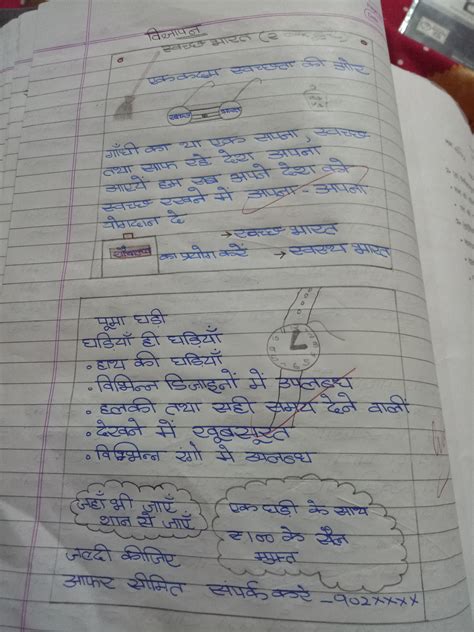 विज्ञापन
स्वच्छ भारत
एक कदम स्वच्छता की ओर
स्वच्छ भारत
गाँधी का था एक सपना, स्वच्छ
तथा साफ रहे देश अपना
आएये हम सब अपने देश को
स्वच्छ रखने में अपना-अपना
योगदान दे
→ स्वच्छ भारत
शौचालय का प्रयोग करें → स्वस्थ भारत
पूमा घड़ी
घड़ियाँ ही घड़ियाँ
• हाथ की घड़ियाँ
• विभिन्न डिजाइनों में उपलब्ध
• हलकी तथा सही समय देने वाली
• देखने में खूबसूरत
• विभिन्न रंगो मे उपलब्ध
जहाँ भी जाएँ
शान से जाएँ
एक घड़ी के साथ
₹100 के सैल
मुफ्त
जल्दी कीजिए
आफर सीमित संपर्क करे -902xxxx